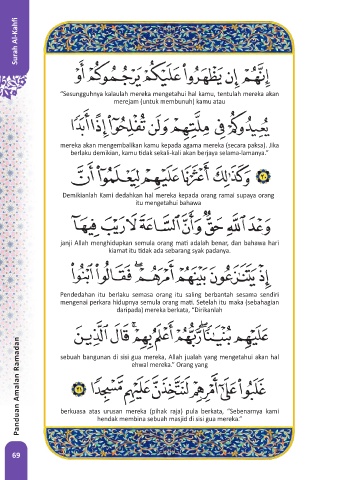 Surah Al-Kahfi
إِنَّهُمْ إِن يَظْهَرُوا۟ عَلَيْكُمْ يَرْجُمُوكُمْ أَوْ
"Sesungguhnya kalaulah mereka mengetahui hal kamu, tentulah mereka akan
merejam (untuk membunuh) kamu atau
يُعِيدُوكُمْ فِى مِلَّتِهِمْ وَلَن تُفْلِحُوٓا۟ إِذًا أَبَدًا
mereka akan mengembalikan kamu kepada agama mereka (secara paksa). Jika
berlaku demikian, kamu tidak sekali-kali akan berjaya selama-lamanya."
٢٠ وَكَذَٰلِكَ أَعْثَرْنَا عَلَيْهِمْ لِيَعْلَمُوٓا۟ أَنَّ
Demikianlah Kami dedahkan hal mereka kepada orang ramai supaya orang
itu mengetahui bahawa
وَعْدَ ٱللَّهِ حَقٌّ وَأَنَّ ٱلسَّاعَةَ لَا رَيْبَ فِيهَآ
janji Allah menghidupkan semula orang mati adalah benar, dan bahawa hari
kiamat itu tidak ada sebarang syak padanya.
إِذْ يَتَنَٰزَعُونَ بَيْنَهُمْ أَمْرَهُمْ ۖ فَقَالُوا۟ ٱبْنُوا۟
Pendedahan itu berlaku semasa orang itu saling berbantah sesama sendiri
mengenai perkara hidupnya semula orang mati. Setelah itu maka (sebahagian
daripada) mereka berkata, "Dirikanlah
عَلَيْهِم بُنْيَٰنًا ۖ رَّبُّهُمْ أَعْلَمُ بِهِمْ ۚ قَالَ ٱلَّذِينَ
sebuah bangunan di sisi gua mereka, Allah jualah yang mengetahui akan hal
ehwal mereka." Orang yang
غَلَبُوا۟ عَلَىٰٓ أَمْرِهِمْ لَنَتَّخِذَنَّ عَلَيْهِم مَّسْجِدًا ٢١
berkuasa atas urusan mereka (pihak raja) pula berkata, "Sebenarnya kami
hendak membina sebuah masjid di sisi gua mereka."
Panduan Amalan Ramadan
69